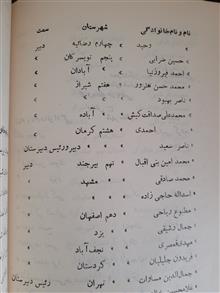 نام و نام خانوادگی شهرستان سمت
» وحید » چهارم رضائیه دبیر
» حسین ضرابی » پنجم تویسرکان »
» احمد فیروزنیا » » آبادان »
» محمد حسن هنرور » هفتم شیراز »
» ناصر بهبود » » » »
» محمدعلی صداقت کیش » » آباده »
» احمدی » هشتم کرمان »
» ناصر سعید » » » دبیر و رئیس دبیرستان
» محمد امین بنی اقبال » نهم بیرجند دبیر
» محمد صادقی » » مشهد »
» اسداله حاجی زاده » » » »
» مطبوع ریاحی » دهم اصفهان »
» جمال شفیقی » » یزد »
» مهدی قمری » » نجف آباد »
» فریدون جلیلیان » کردستان »
» جمال الدین مساوات » تهران رئیس دبیرستان
» غلامحسین